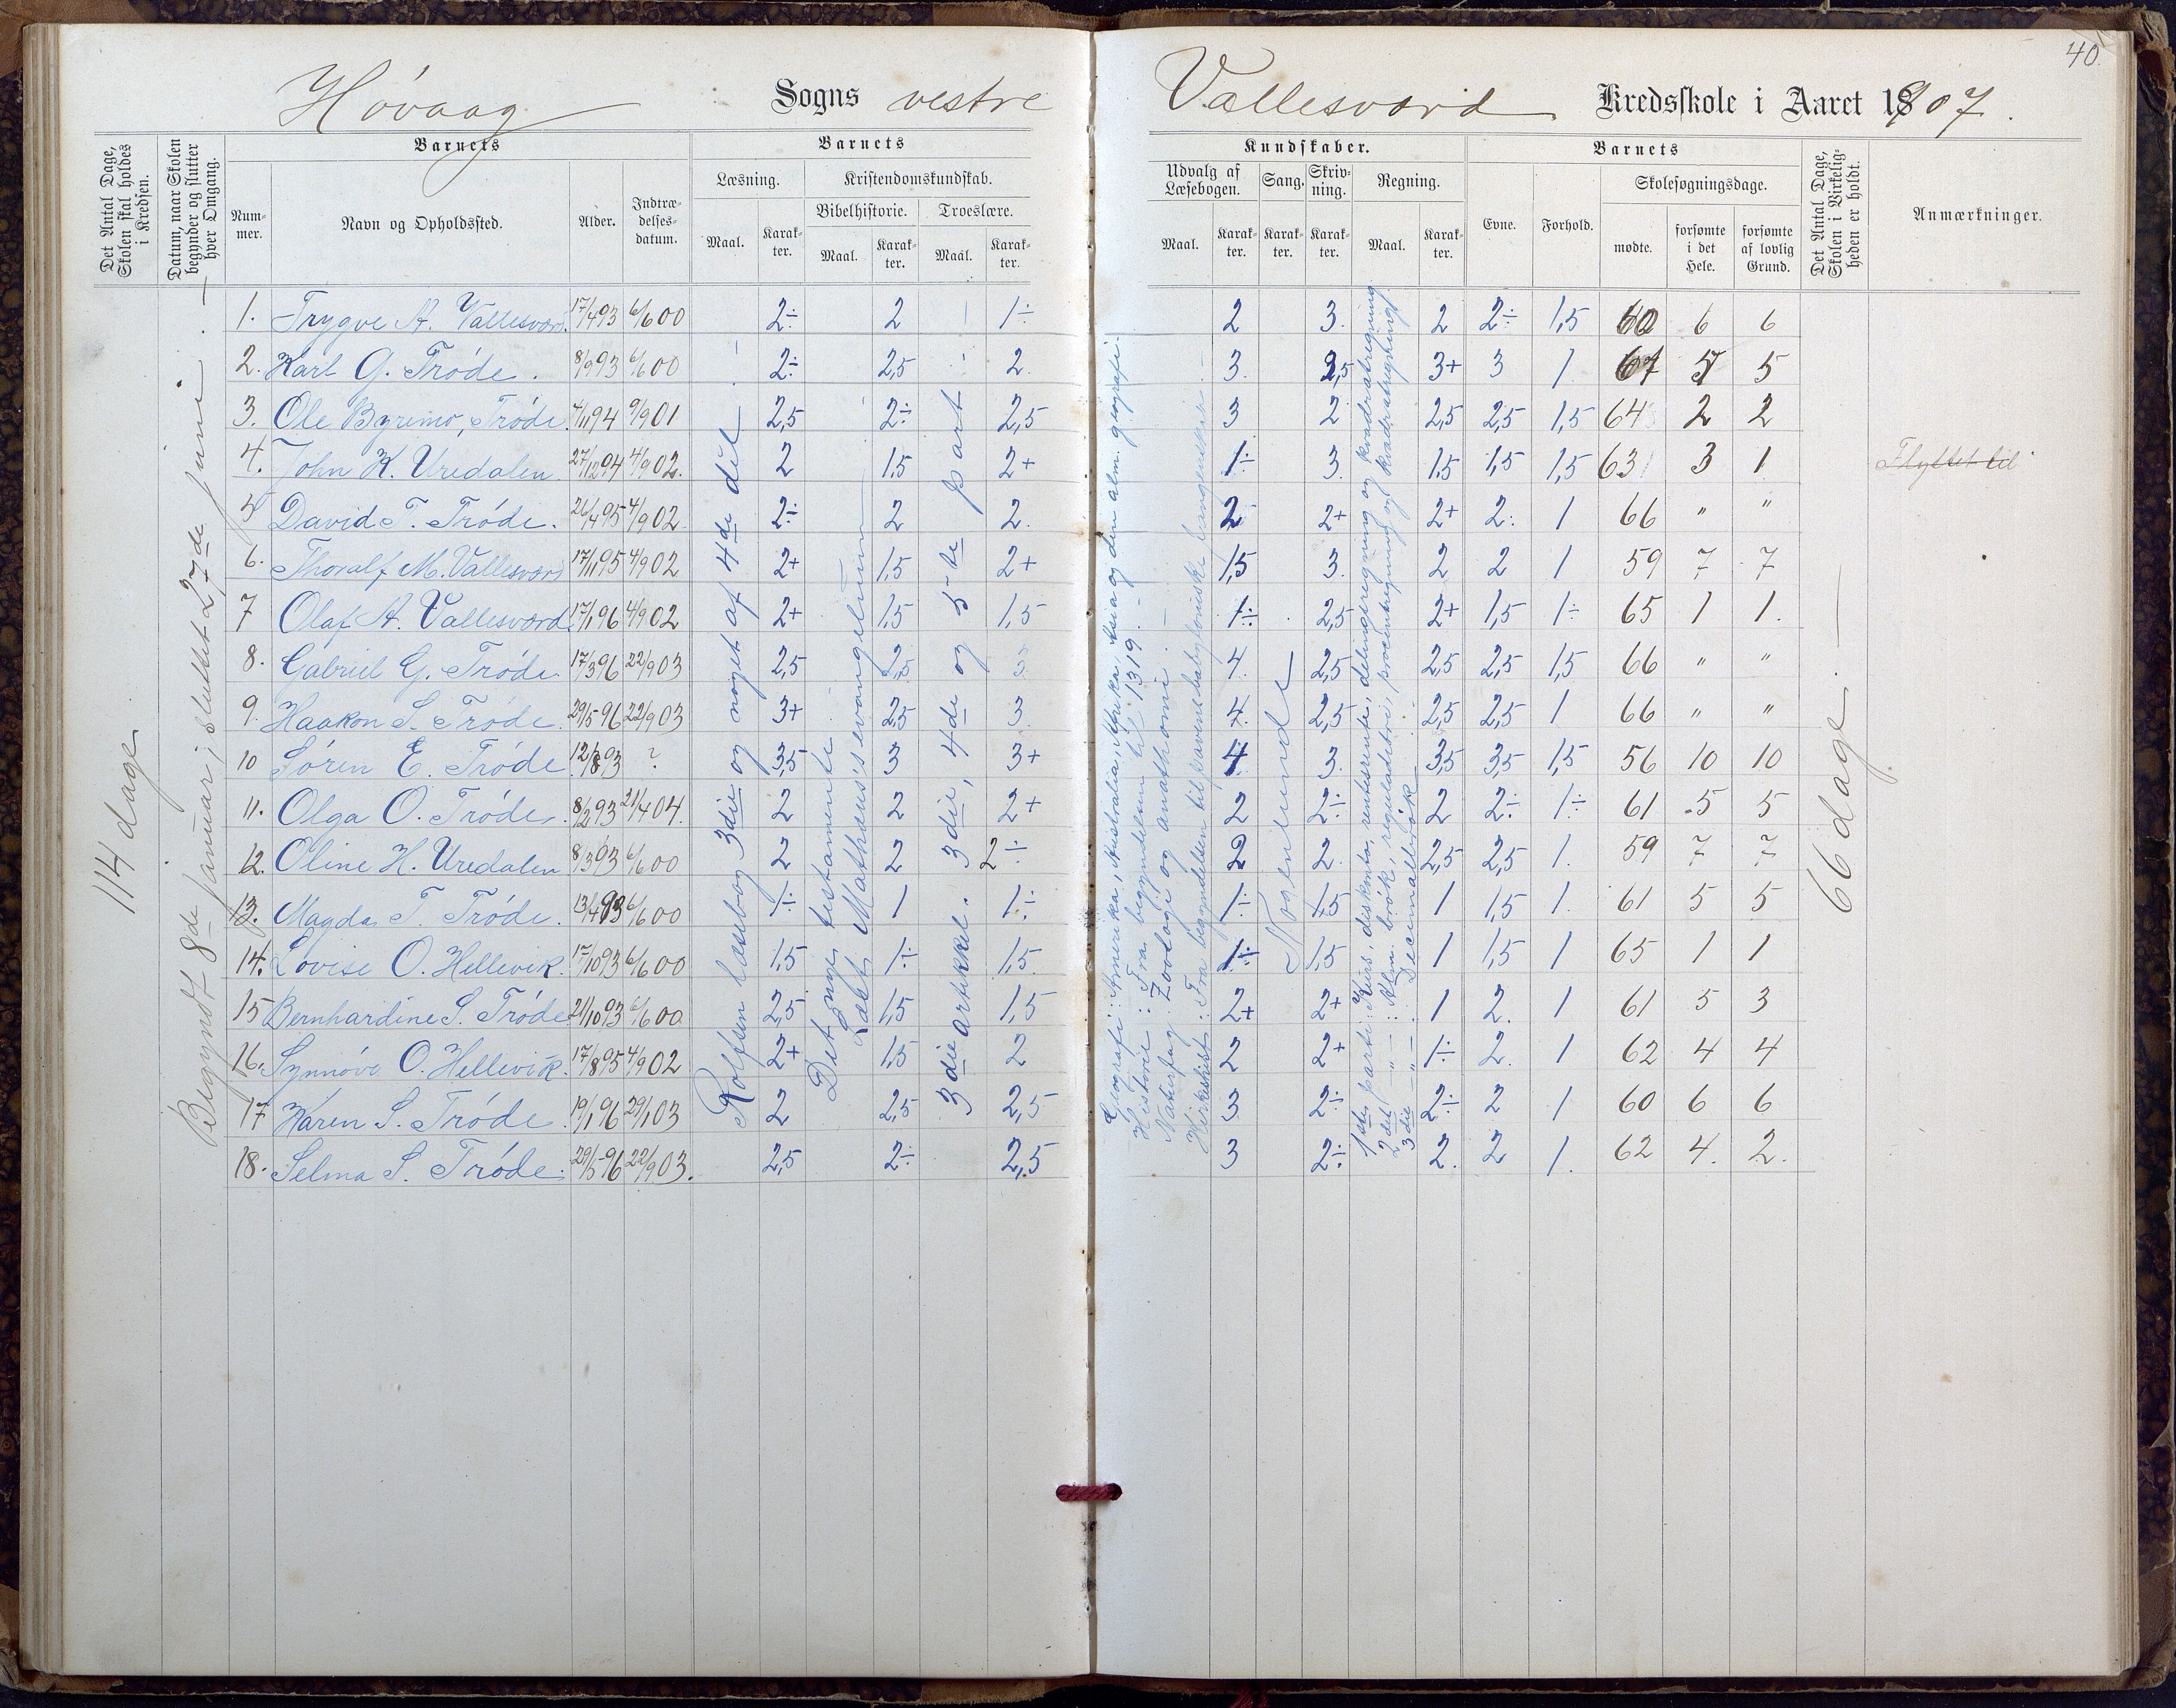 40.
Høvaag Sogns vestre Vallesværd Kredsskole i Aaret 1907.
Det Antal Dage, Skolen skal holdes i Kredsen.
Datum, naar Skolen begynder og slutter hver Omgang.
Barnets
Nummer.
Navn og Opholdssted.
Alder.
Indtrædelsesdatum.
Barnets
Læsning.
Maal.
Karakter.
Kristendomskundskab.
Bibelhistorie.
Maal.
Karakter.
Troeslære.
Maal.
Karakter.
Kundskaber.
Udvalg af Læsebogen.
Maal.
Karakter.
Sang.
Karakter.
Skrivning.
Karakter.
Regning.
Maal.
Karakter.
Barnets
Evne.
Forhold.
Skolesøgningsdage.
mødte.
forsømte i det Hele.
forsømte af lovlig Grund.
Det Antal Dage, Skolen i Virkeligheden er holdt.
Anmærkninger.
114 dage
Begyndt 8de januar, sluttet 27de juni.
1. Trygve A. Vallesværd. 17/4 93 6/6 00 2÷ 2 1÷ 2 3. 2 2÷ 1,5 60 6 6
2. Karl G. Trøde. 8/9 93 6/6 00 2÷ 2,5 2. 3. 2,5 3+ 3 1 5 5
3. Ole Byremo, Trøde. 4/11 94 9/9 01 2,5 2÷ 2,5 3 2 2,5 2,5 1,5 64 2 2
4. John K. Uredalen 27/12 94 4/9 02. 2 1,5 2+ 1÷ 3. 1,5 1,5 1,5 63 3 1 Flyttet til
5 David T. Trøde. 26/4 95 4/9 02 2÷ 2 2. 2 2+ 2+ 2. 1 66 " "
6. Thoralf M. Vallesværd 17/11 95 4/9 02 2+ 1,5 2+ 1,5 3. 2 2 1 59 7 7
7 Olaf A. Vallesværd 17/1 96 4/9 02 2+ 1,5 1,5 1÷ 2,5 2+ 1,5 1÷ 65 1 1.
8. Gabriel G. Trøde 17/3 96 22/9 03 2,5 2,5 3 4. 2,5 2,5 2,5 1,5 66 " "
9. Haakon S. Trøde. 29/5 96 22/9 03 3+ 2,5 3. 4. 2,5 2,5 2,5 1 66 " "
10 Søren E. Trøde 12/8 93 ? 3,5 3 3+ 4 3. 3,5 3,5 1,5 56 10 10
11. Olga O. Trøde. 8/2 93 21/4 04. 2 2 2+ 2 2÷ 2 2÷ 1÷ 61 5 5
12. Oline H. Uredalen 8/3 93 6/6 00 2 2 2÷ 2 2. 2,5 2,5 1. 59 7 7
13. Magda T. Trøde. 13/4 93 6/6 00 1÷ 1 1÷ 1÷ 1,5 1 1,5 1. 61 5 5
14. Lovise O. Hellevik. 17/10 93 6/6 00 1,5 1÷ 1,5 1÷ 1,5 1 1,5 1 65 1 1
15 Bernhardine S. Trøde 21/10 93 6/6 00 2,5 1,5 1,5 2+ 2+ 1 2. 1 61 5 3
16. Synnøve O. Hellevik. 17/8 95 4/9 02 2+ 1,5 2 2 2+ 1÷ 2. 1 62 4 4
17 Karen S. Trøde 19/1 96 29/1 03 2 2,5 2,5 3 2÷ 2÷ 2 1 60 6 6
18. Selma S. Trøde. 29/5 96 22/9 03. 2,5 2÷ 2,5 3 2÷ 2. 2 1. 62 4. 2.
Rolfsen læsebog 3die og noget af 4de del
Det nye testamente
Læst Mathæus's evangelium
3die artikkel. 3die, 4de og 5-te part
Geografi: Amerika, Australia, Afrika, Asia og den alm. geografi.
Historie: Fra begyndelsen til 1319.
Naturfag: Zoologi og anathomi.
Kirkehist: Fra begyndelsen til pavene babyloniske fangenskab.
Noglelunde
1ste parti: Kurs, diskonto, rentesrente, delingsregning og kvadratregning
2det -"- : Alm. brøk, reguladetri, procentregning og kvadratregning
3die -"- : Decimalbrøk
66 dage.